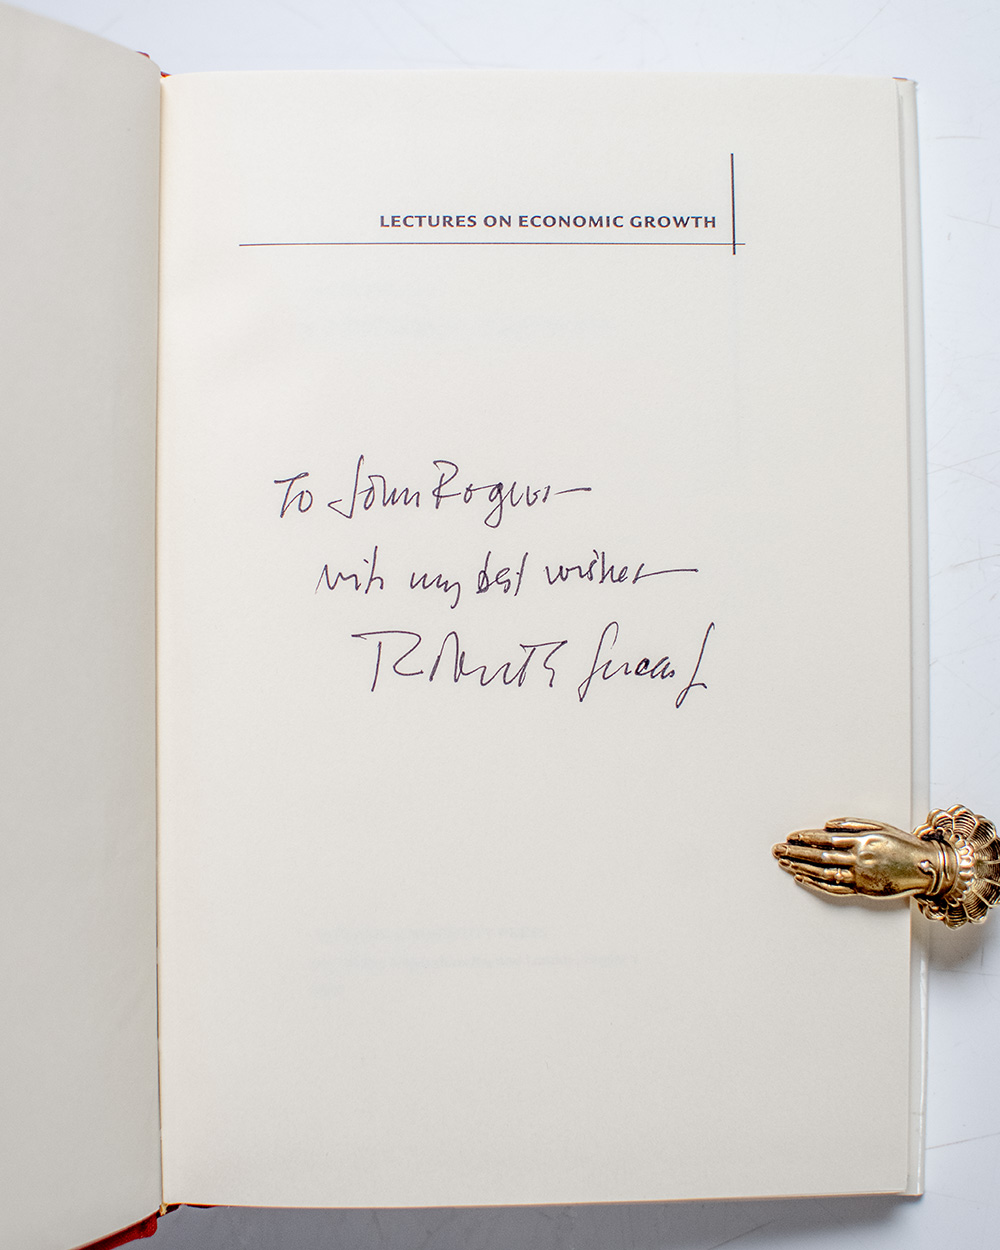 LECTURES ON ECONOMIC GROWTH
To John Rogers—
with my best wishes—
Robert E Lucas Jr